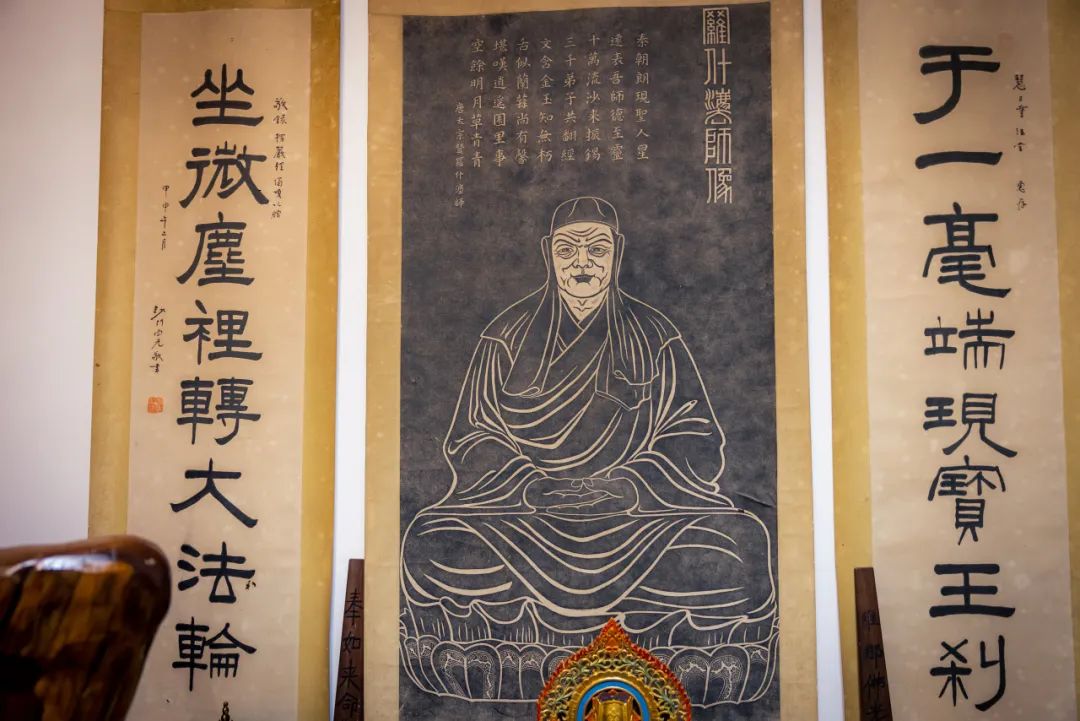 于一毫端現寶王刹
羅什灋師像
秦朝朗現聖人星
遠表吾師德至靈
十萬流沙来振錫
三千弟子共翻經
文含金玉知無朽
舌似蘭蓀尚有馨
堪嘆逍遥園里事
空餘明月草青青
唐太宗贊羅什灋師
敬録楞嚴經
坐微塵裡轉大法輪
奉如来命